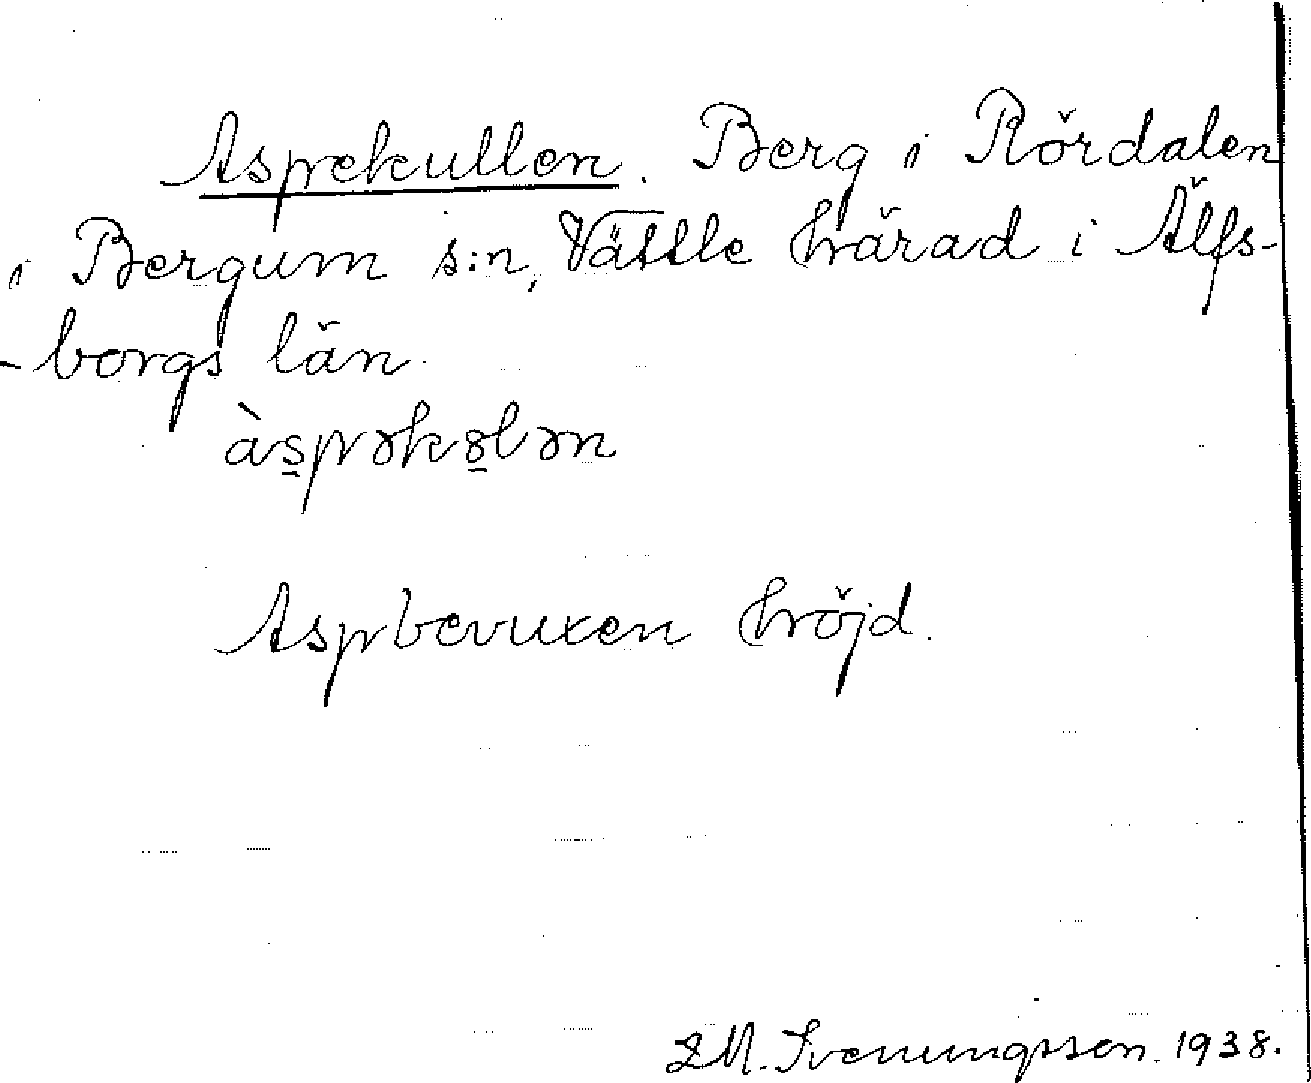 Aspekullen. Berg i Rördalen
i Bergum s:n, Vättle härad i Älfs-
-borgs län.
às̱pəkȣ̱lən
Aspbevuxen höjd.
Svenungsson. 1938.